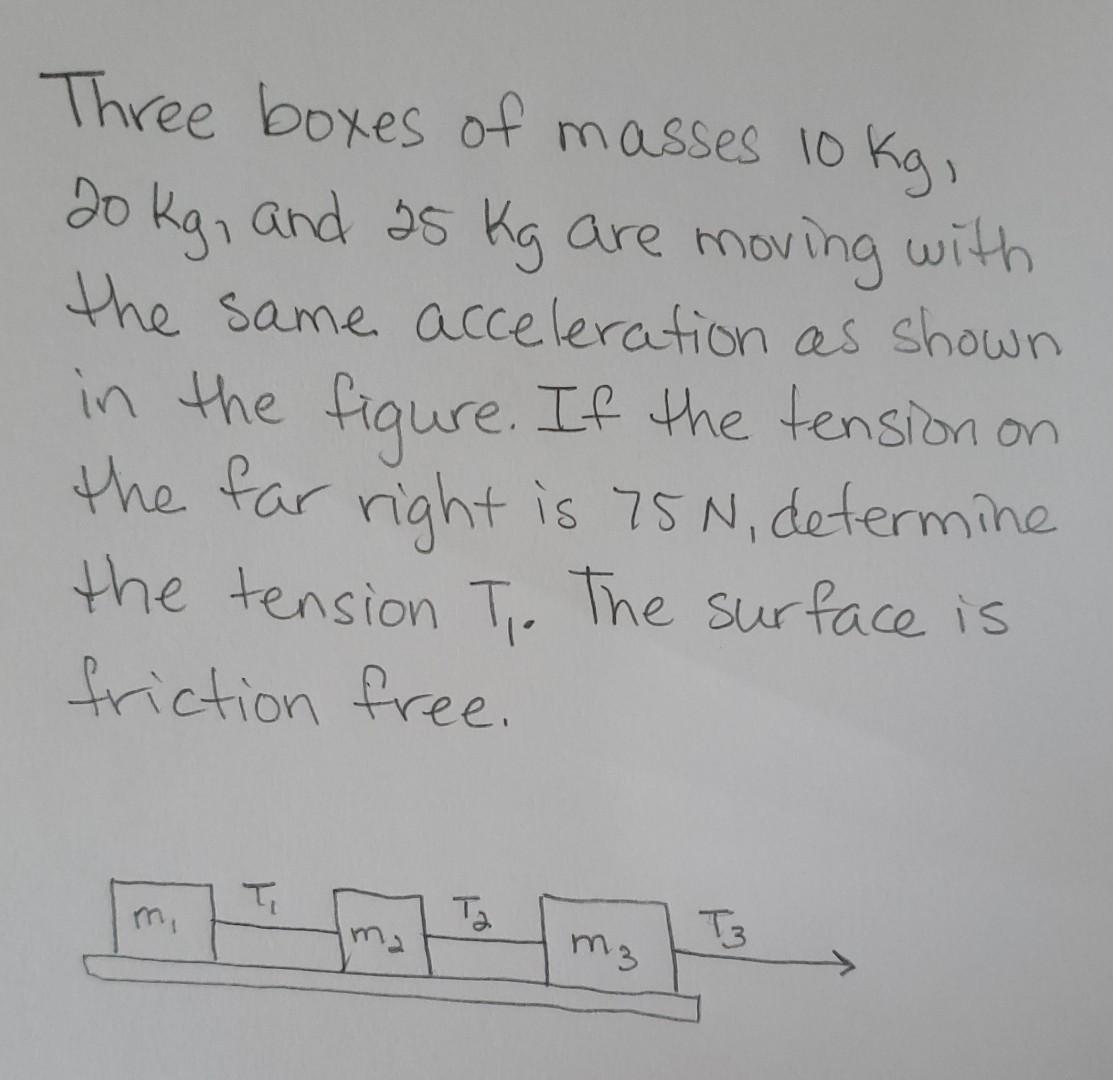 Three boxes of masses 10 Kg,
20 kg, and 25 Kg are moving with
the same acceleration as shown
in the figure. If the tension on
the far right is 75 N, determine
the tension T₁. The surface is
friction free.
m₁ T₁ m₂ T₂ m₃ T₃